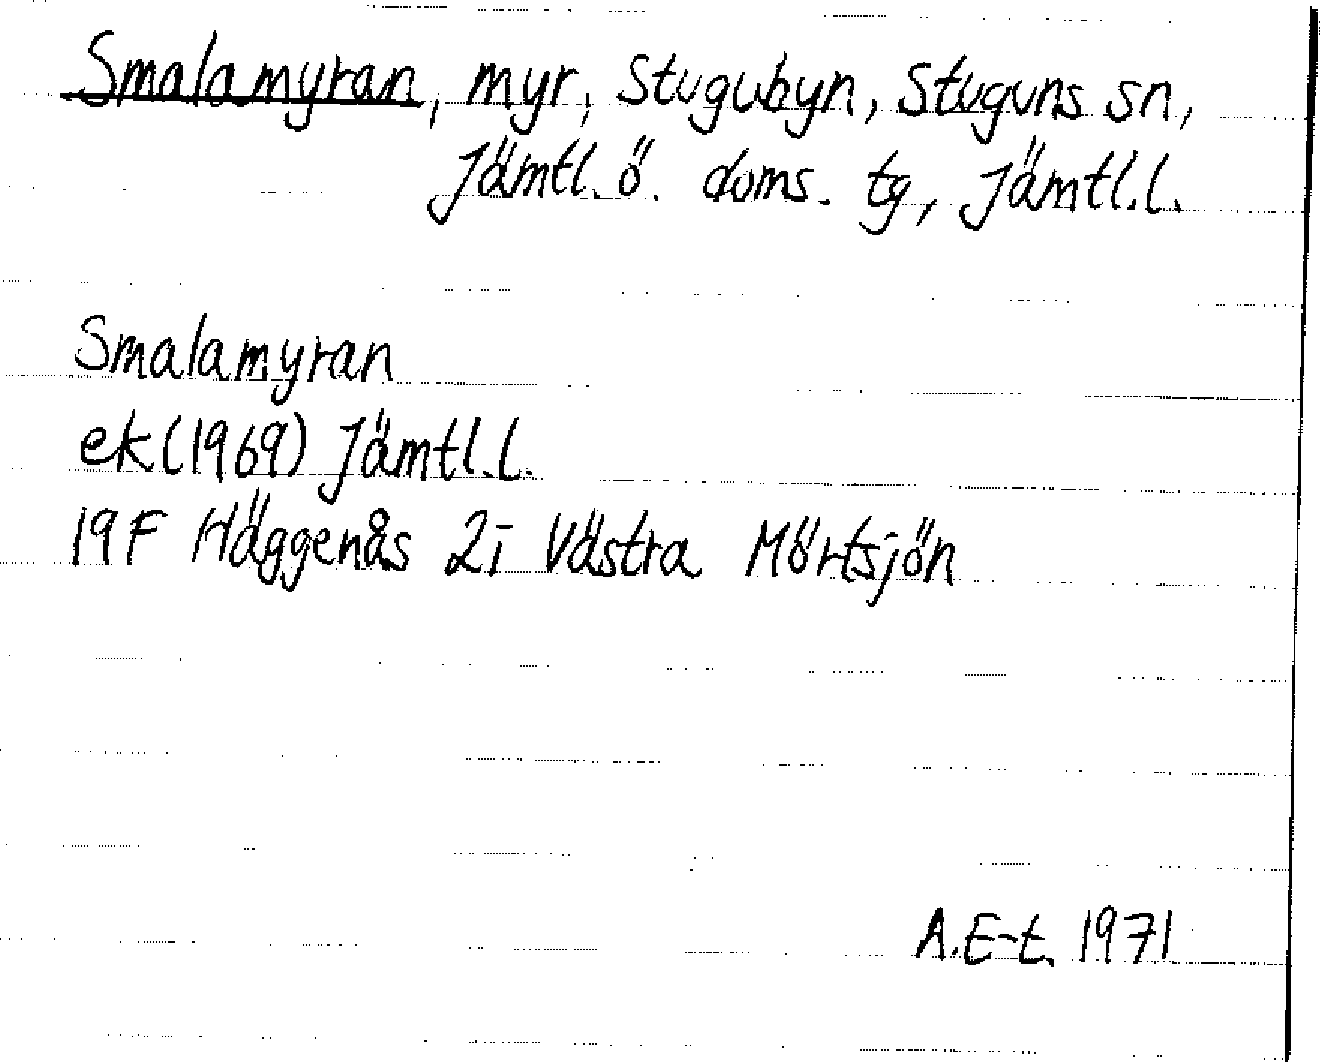 Smalamyran, myr, Stugubyn, Stuguns sn,
Jämtl. ö. doms. tg, Jämtl.l.
Smalamyran
ek (1969) Jämtl.l.
19F Häggenås 2i Västra Mörtsjön
A.E-t. 1971